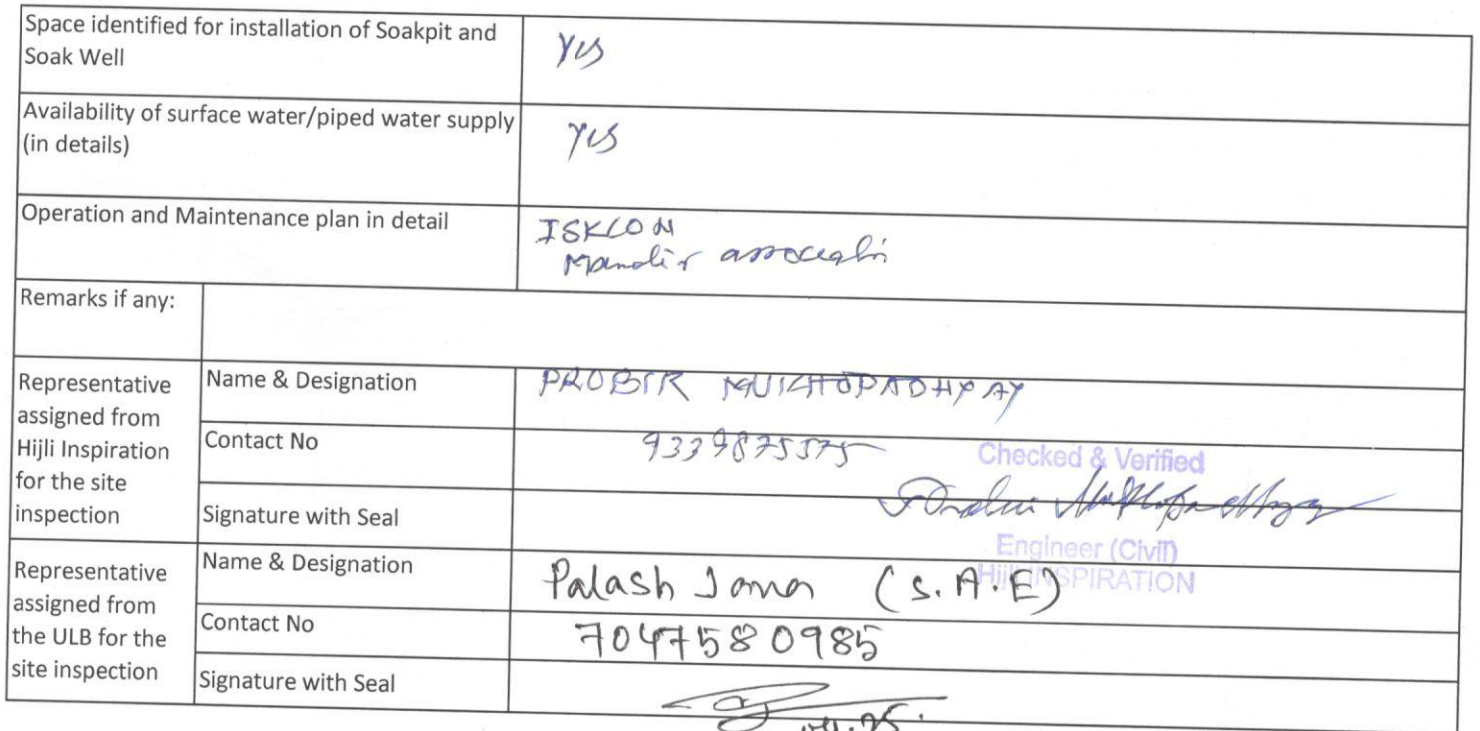 Space identified for installation of Soakpit and
Soak Well
Yes
Availability of surface water/piped water supply
(in details)
Yes
Operation and Maintenance plan in detail
ISKCON
Mandir
Remarks if any:
Representative
assigned from
Hijli Inspiration
for the site
inspection
Name & Designation
PROBIR MUKHOPADHYAY
Contact No
9339875575
Signature with Seal
Checked & Verified
Engineer (Civil)
Hijli INSPIRATION
Representative
assigned from
the ULB for the
site inspection
Name & Designation
Palash Jana (S.A.E)
Contact No
7047580985
Signature with Seal